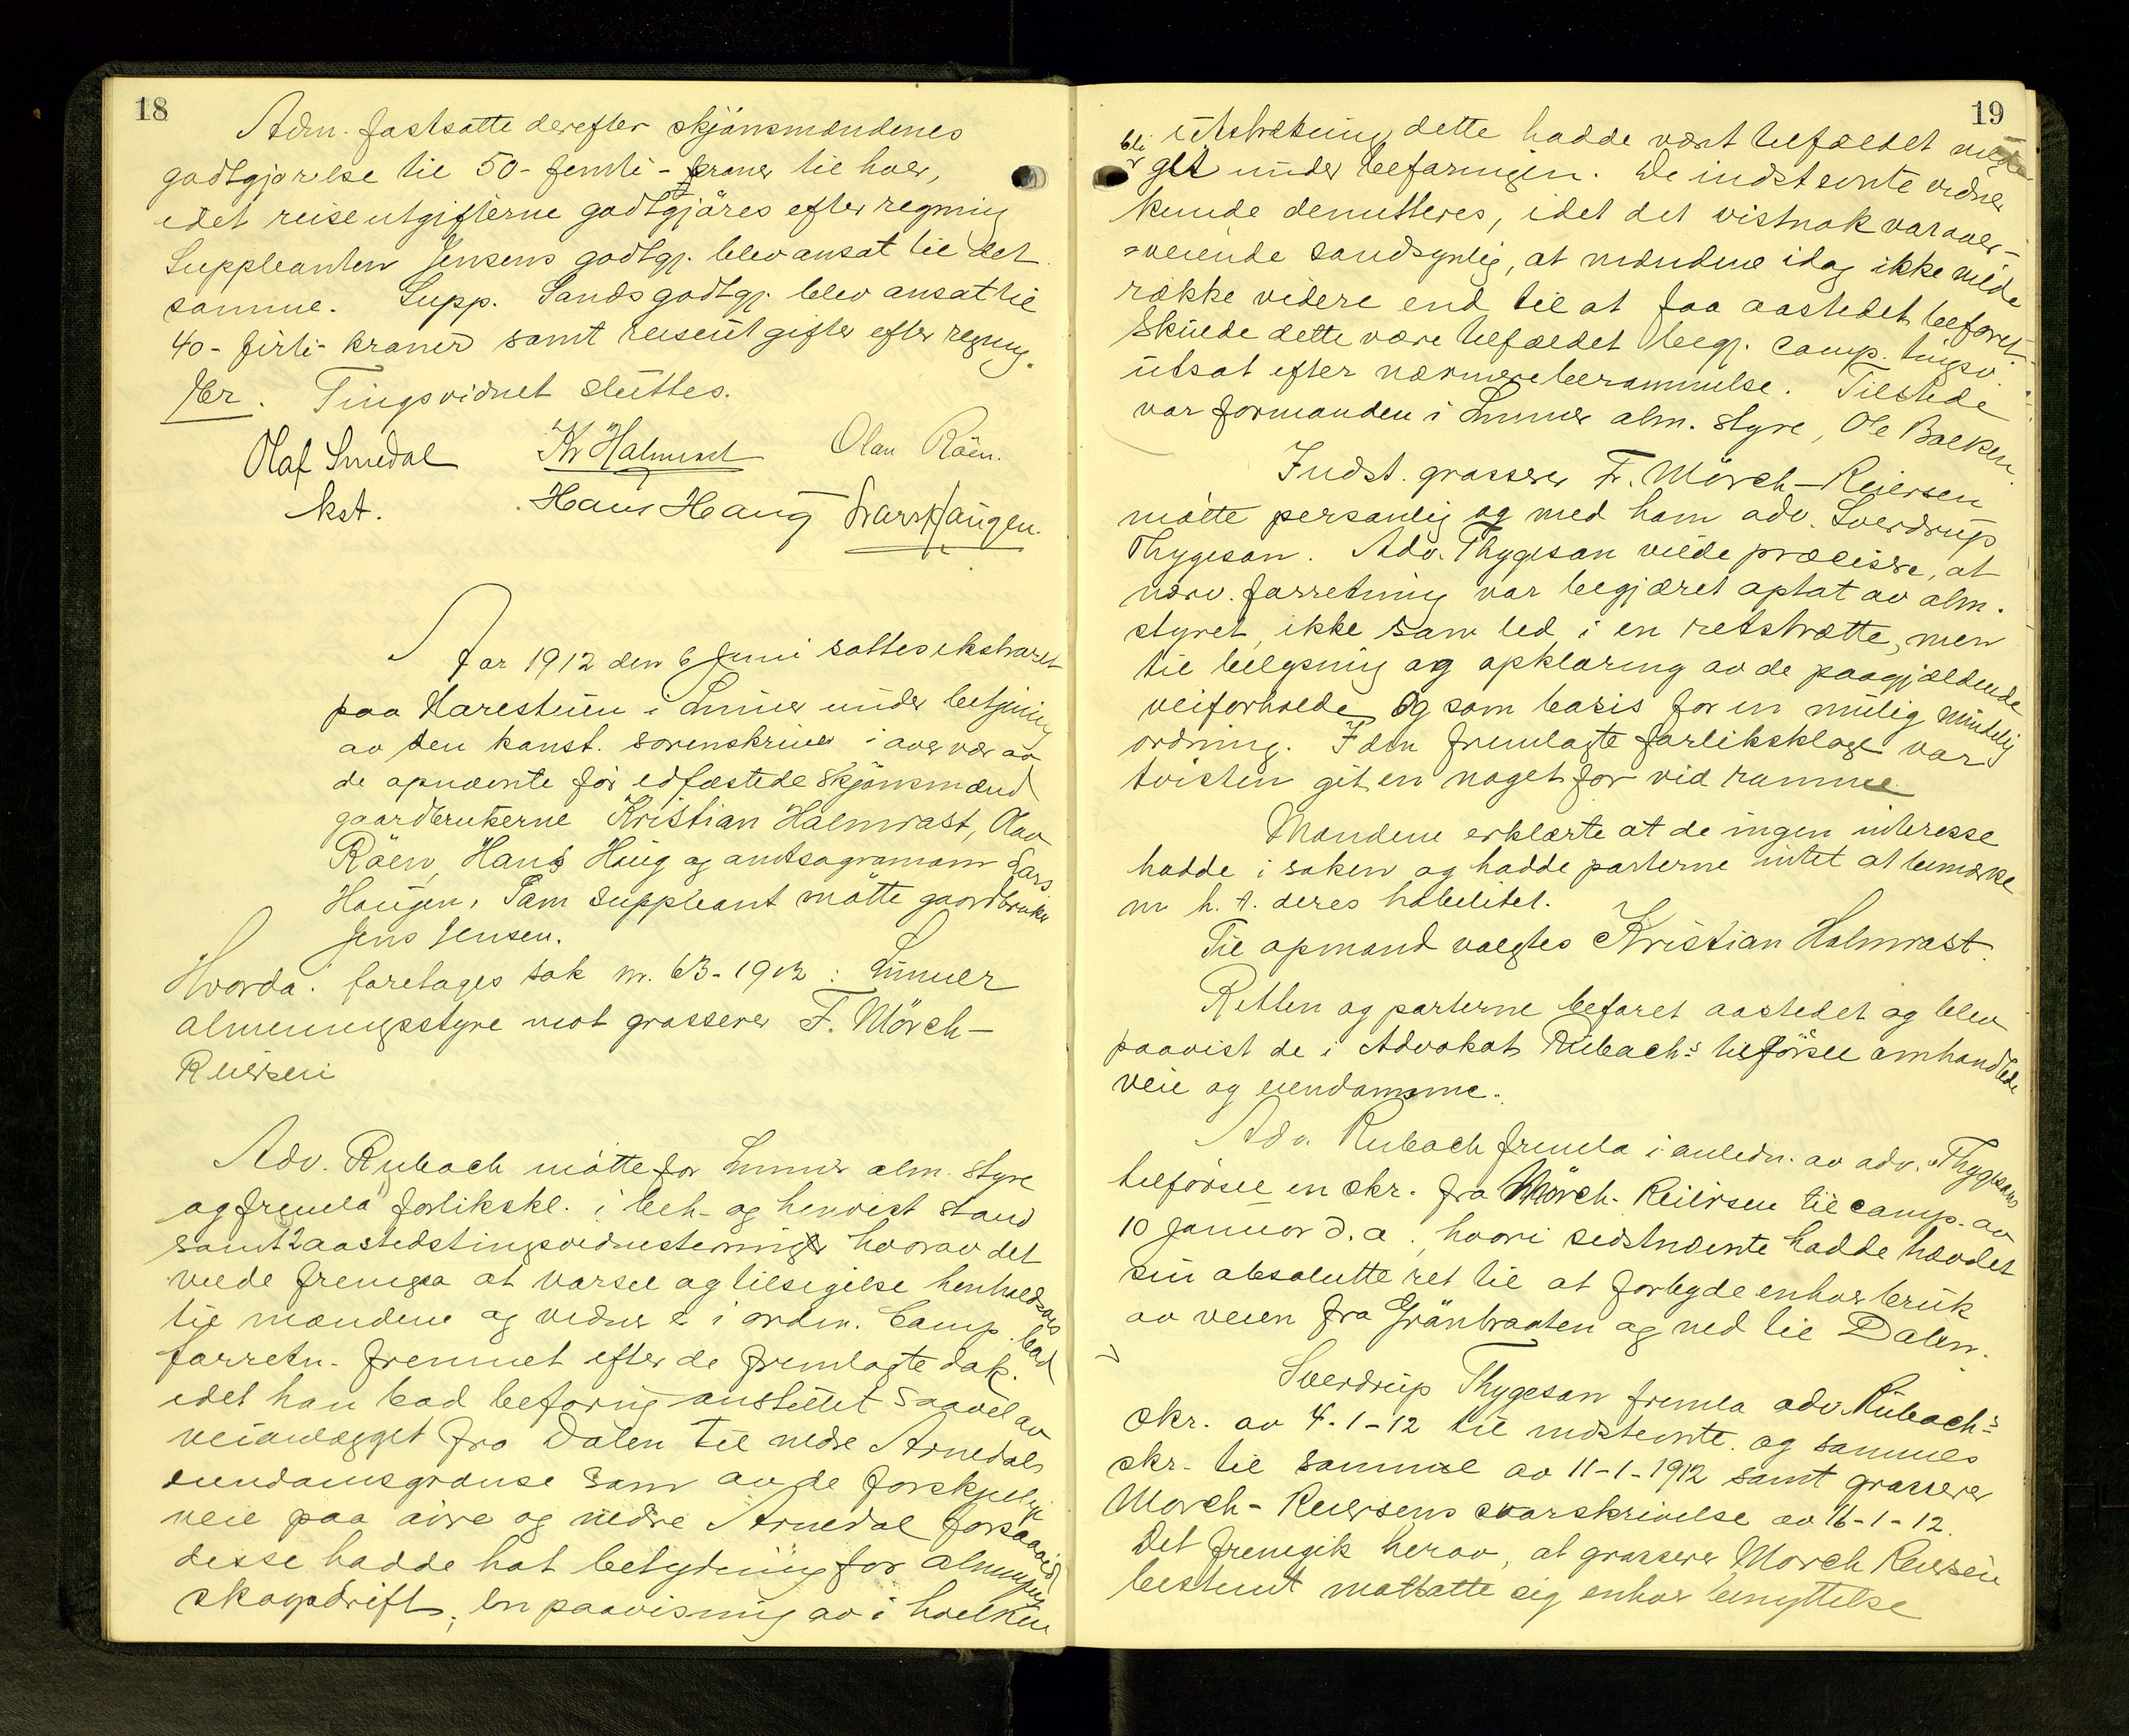 18
Adm. fastsatte derefter skjönsmændenes
godtgjörelse til 50 - femti - kroner til hver,
idet reiseutgifterne godtgjöres efter regning
Suppleanten Jensens godtgj. blev ansat til det
samme. Supp. Sands godtgj. blev ansat til
40 - firti - kroner samt reiseutgifter efter regning.
Tingsvidnet sluttes.
Olaf Smedal Kr Halmrast Olav Röen.
kst. Hans Haug Lars Haugen.
Aar 1912 den 6 Juni sattes ekstraret
paa Harestuen i Lunner under betjening
av den konst. sorenskriver i overvær av
de opnævnte før edfæstede skjönsmænd
gaardbrukerne Kristian Halmrast, Olav
Röen, Hans Haug og amtsagronom Lars
Haugen. Som suppleant mötte gaardbruker
Jens Jensen.
Hvorda: foretages sak nr. 63-1912: Lunner
almenningsstyre mot grosserer F. Mörch-
Reiersen
Adv. Rubach mötte for Lunner alm. styre
og fremla forlikskl. i beh- og henvist stand
samt 2 aastedstingsvidnestevninger hvorav det
vilde fremgaa at varsel og tilsigelse henholdsvis
til mændene og vidner e i orden. Comp. bad
forretn. fremmet efter de fremlagte dok.
idet han bad befaring anstillet saavel av
veianlægget fra Dalen til nedre Arnedals
eiendomsgrænse som av de forskjellige
veie paa övre og nedre Arnedal forsaavidt
disse hadde hat betydning for almenningens
skogsdrift. En paavisning av i hvilken
19
utstrækning dette hadde vært tilfældet maatte
bli git under befaringen. De indstevnte vidner
kunde demitteres, idet det vistnok var over-
veiende sandsynlig, at mændene idag ikke vilde
række videre end til at faa aastedet befaret.
Skulde dette være tilfældet begj. comp. tingsv.
utsat efter nærmere berammelse. Tilstede
var formanden i Lunner alm. styre, Ole Bælken.
Indst. grosserer F. Mörch-Reiersen
mötte personlig og med ham adv. Sverdrup
Thygeson. Adv. Thygeson vilde præcisere, at
nærv. forretning var begjæret optat av alm.
styret, ikke som led i en retstrætte, men
til belysning og opklaring av de paagjældende
veiforholde og som basis for en mulig mindelig
ordning. I den fremlagte forliksklage var
tvisten git en noget for vid ramme
Mændene erklærte at de ingen interesse
hadde i saken og hadde parterne intet at bemærke
m h. t. deres habilitet.
Til opmand valgtes Kristian Halmrast.
Retten og parterne befaret aastedet og blev
paavist de i Advokat Rubach's tilförsel omhandlede
veie og eiendomme.
Adv. Rubach fremla i anledn. av adv. Thygesons
tilförsel en skr. fra Mörch-Reiersen til comp. av
10 Januar d. a., hvori sidstnævnte hadde hævdet
sin absolutte ret til at forbyde enhver bruk
av veien fra Grönbraaten og ned til Dalen.
Sverdrup Thygeson fremla adv. Rubach's
skr. av 4-1-12 til indstevnte og sammes
skr. til samme av 11-1-1912 samt grosserer
Mörch-Reiersens svarskrivelse av 16-1-12.
Det fremgik herav, at grosserer Mörch Reiersen
bestemt motsatte sig enhver benyttelse